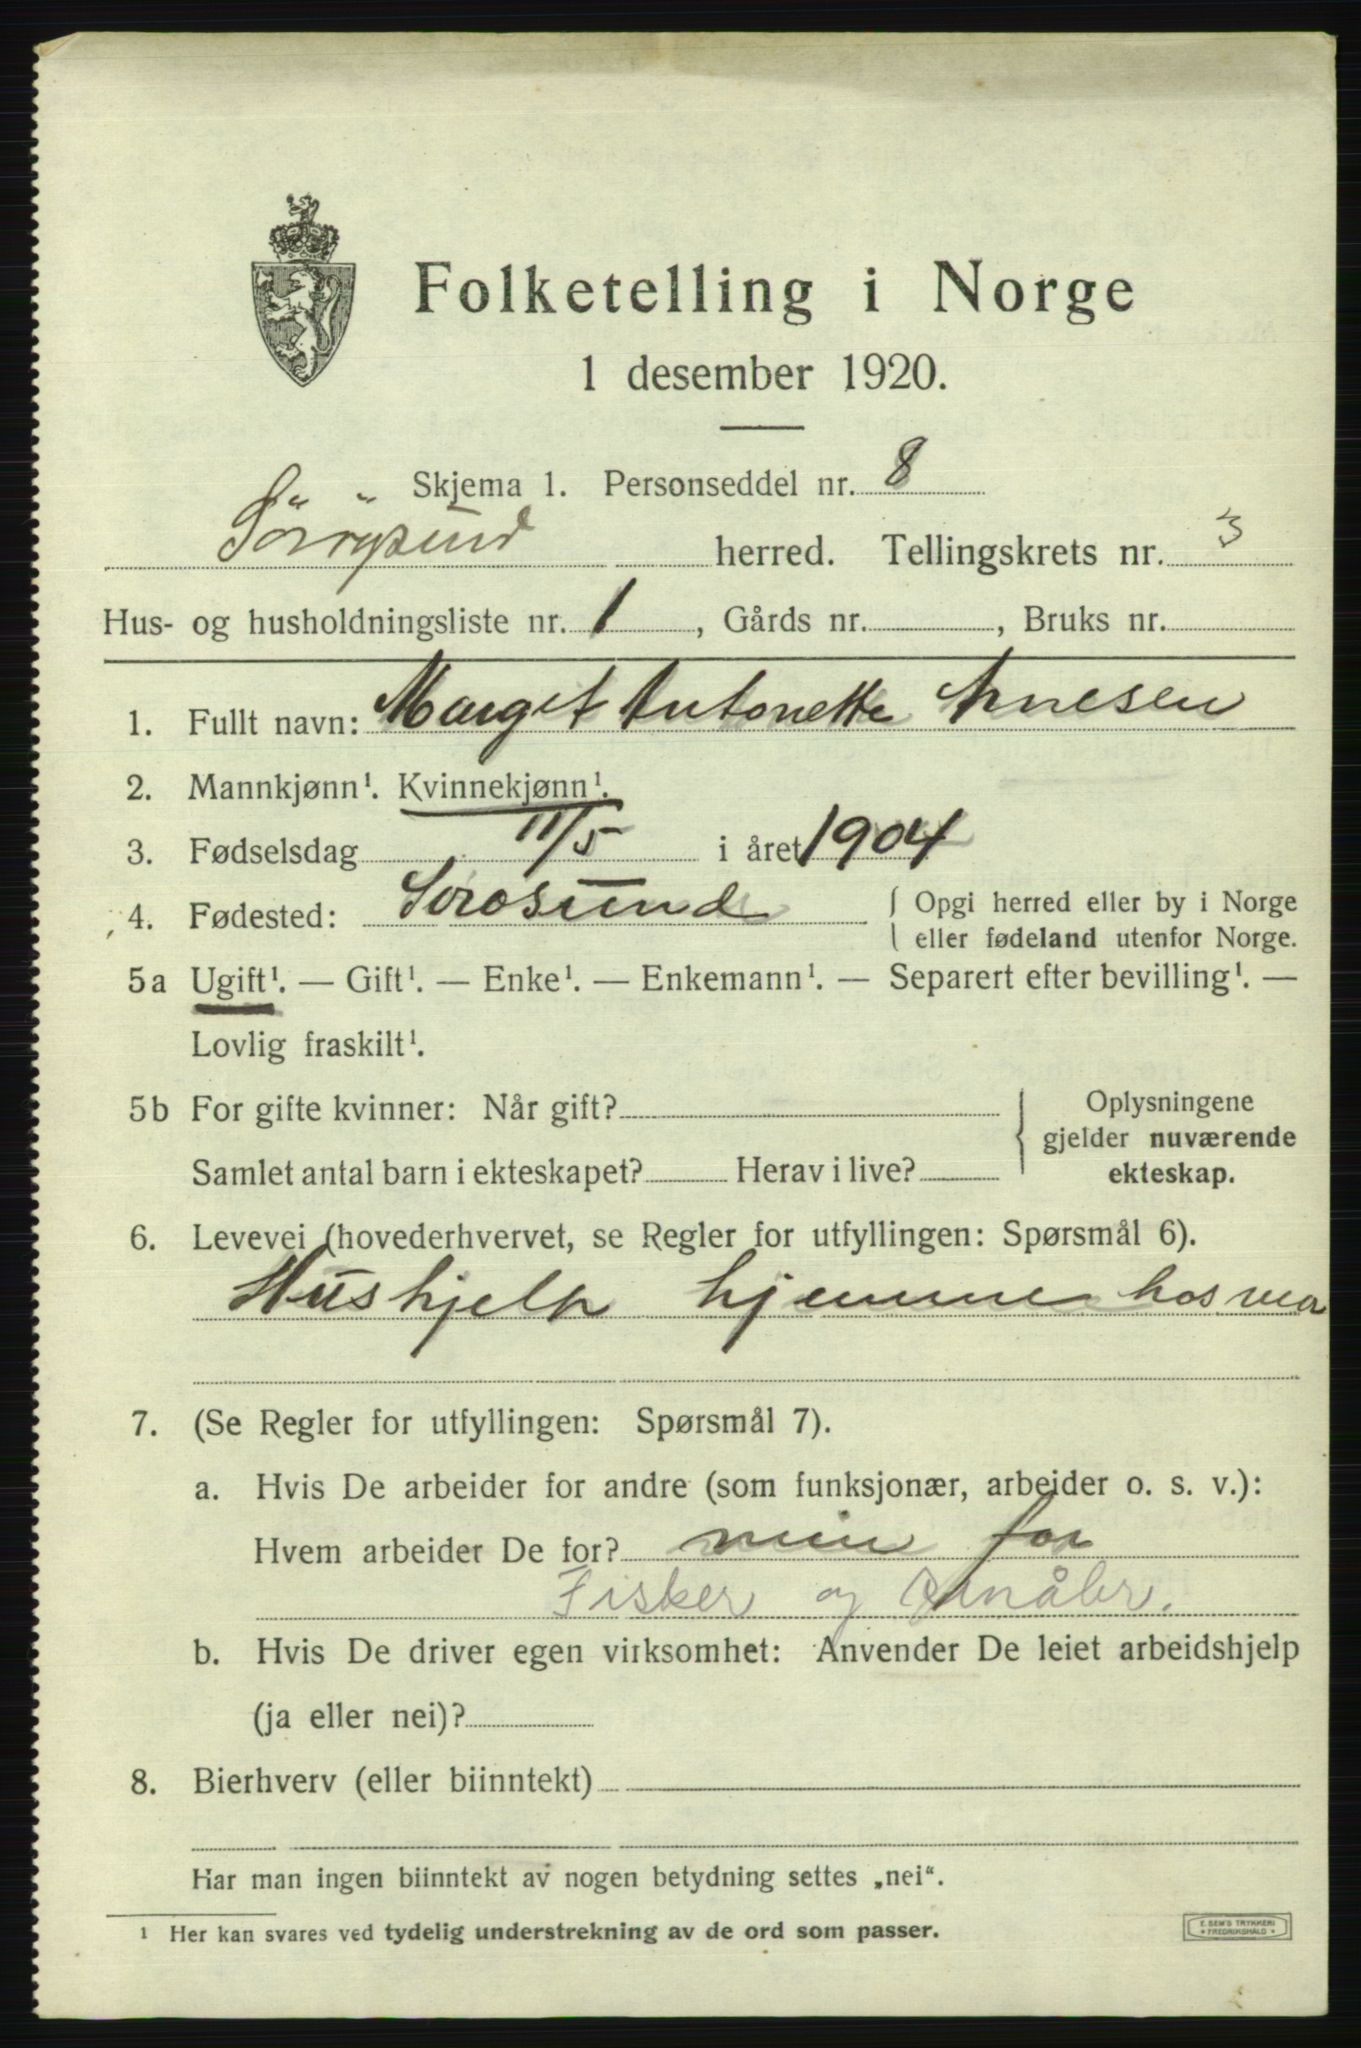 Folketelling i Norge
1 desember 1920.
Skjema 1. Personseddel nr. 8
Sörøysund herred. Tellingskrets nr. 3
Hus- og husholdningsliste nr. 1, Gårds nr. , Bruks nr.
1. Fullt navn: Marget Antonette Arnesen
2. Mannkjønn¹. Kvinnekjønn¹.
3. Fødselsdag 11/5 i året 1904
4. Fødested: Sörösund { Opgi herred eller by i Norge
eller fødeland utenfor Norge.
5a Ugift¹. — Gift¹. — Enke¹. — Enkemann¹. — Separert efter bevilling¹. —
Lovlig fraskilt¹.
5b For gifte kvinner: Når gift? Oplysningene
gjelder nuværende
Samlet antal barn i ekteskapet? Herav i live? ekteskap.
6. Levevei (hovederhvervet, se Regler for utfyllingen: Spørsmål 6).
Hushjelp hjemme hos
7. (Se Regler for utfyllingen: Spørsmål 7).
a. Hvis De arbeider for andre (som funksjonær, arbeider o. s. v.):
Hvem arbeider De for? min far
Fisker og småbr.
b. Hvis De driver egen virksomhet: Anvender De leiet arbeidshjelp
(ja eller nei)?
8. Bierhverv (eller biinntekt)
Har man ingen biinntekt av nogen betydning settes „nei“.
¹ Her kan svares ved tydelig understrekning av de ord som passer.
E. SEM'S TRYKKERI
FREDRIKSHALD